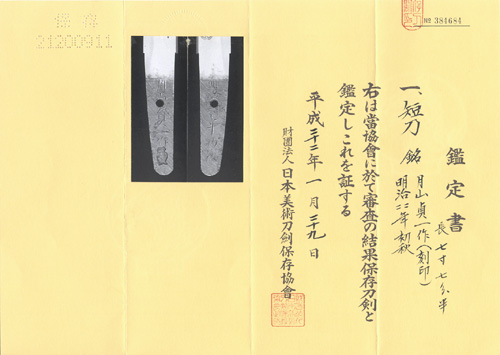 鑑定書
一、短刀 銘 月山貞一作(刻印)
明治二二年初秋
長七寸七分半
右は當協會に於て審査の結果保存刀剣と
鑑定しこれを証する
平成二十二年一月二十九日
財團法人 日本美術刀劍保存協會
№ 384684
保存
21200911